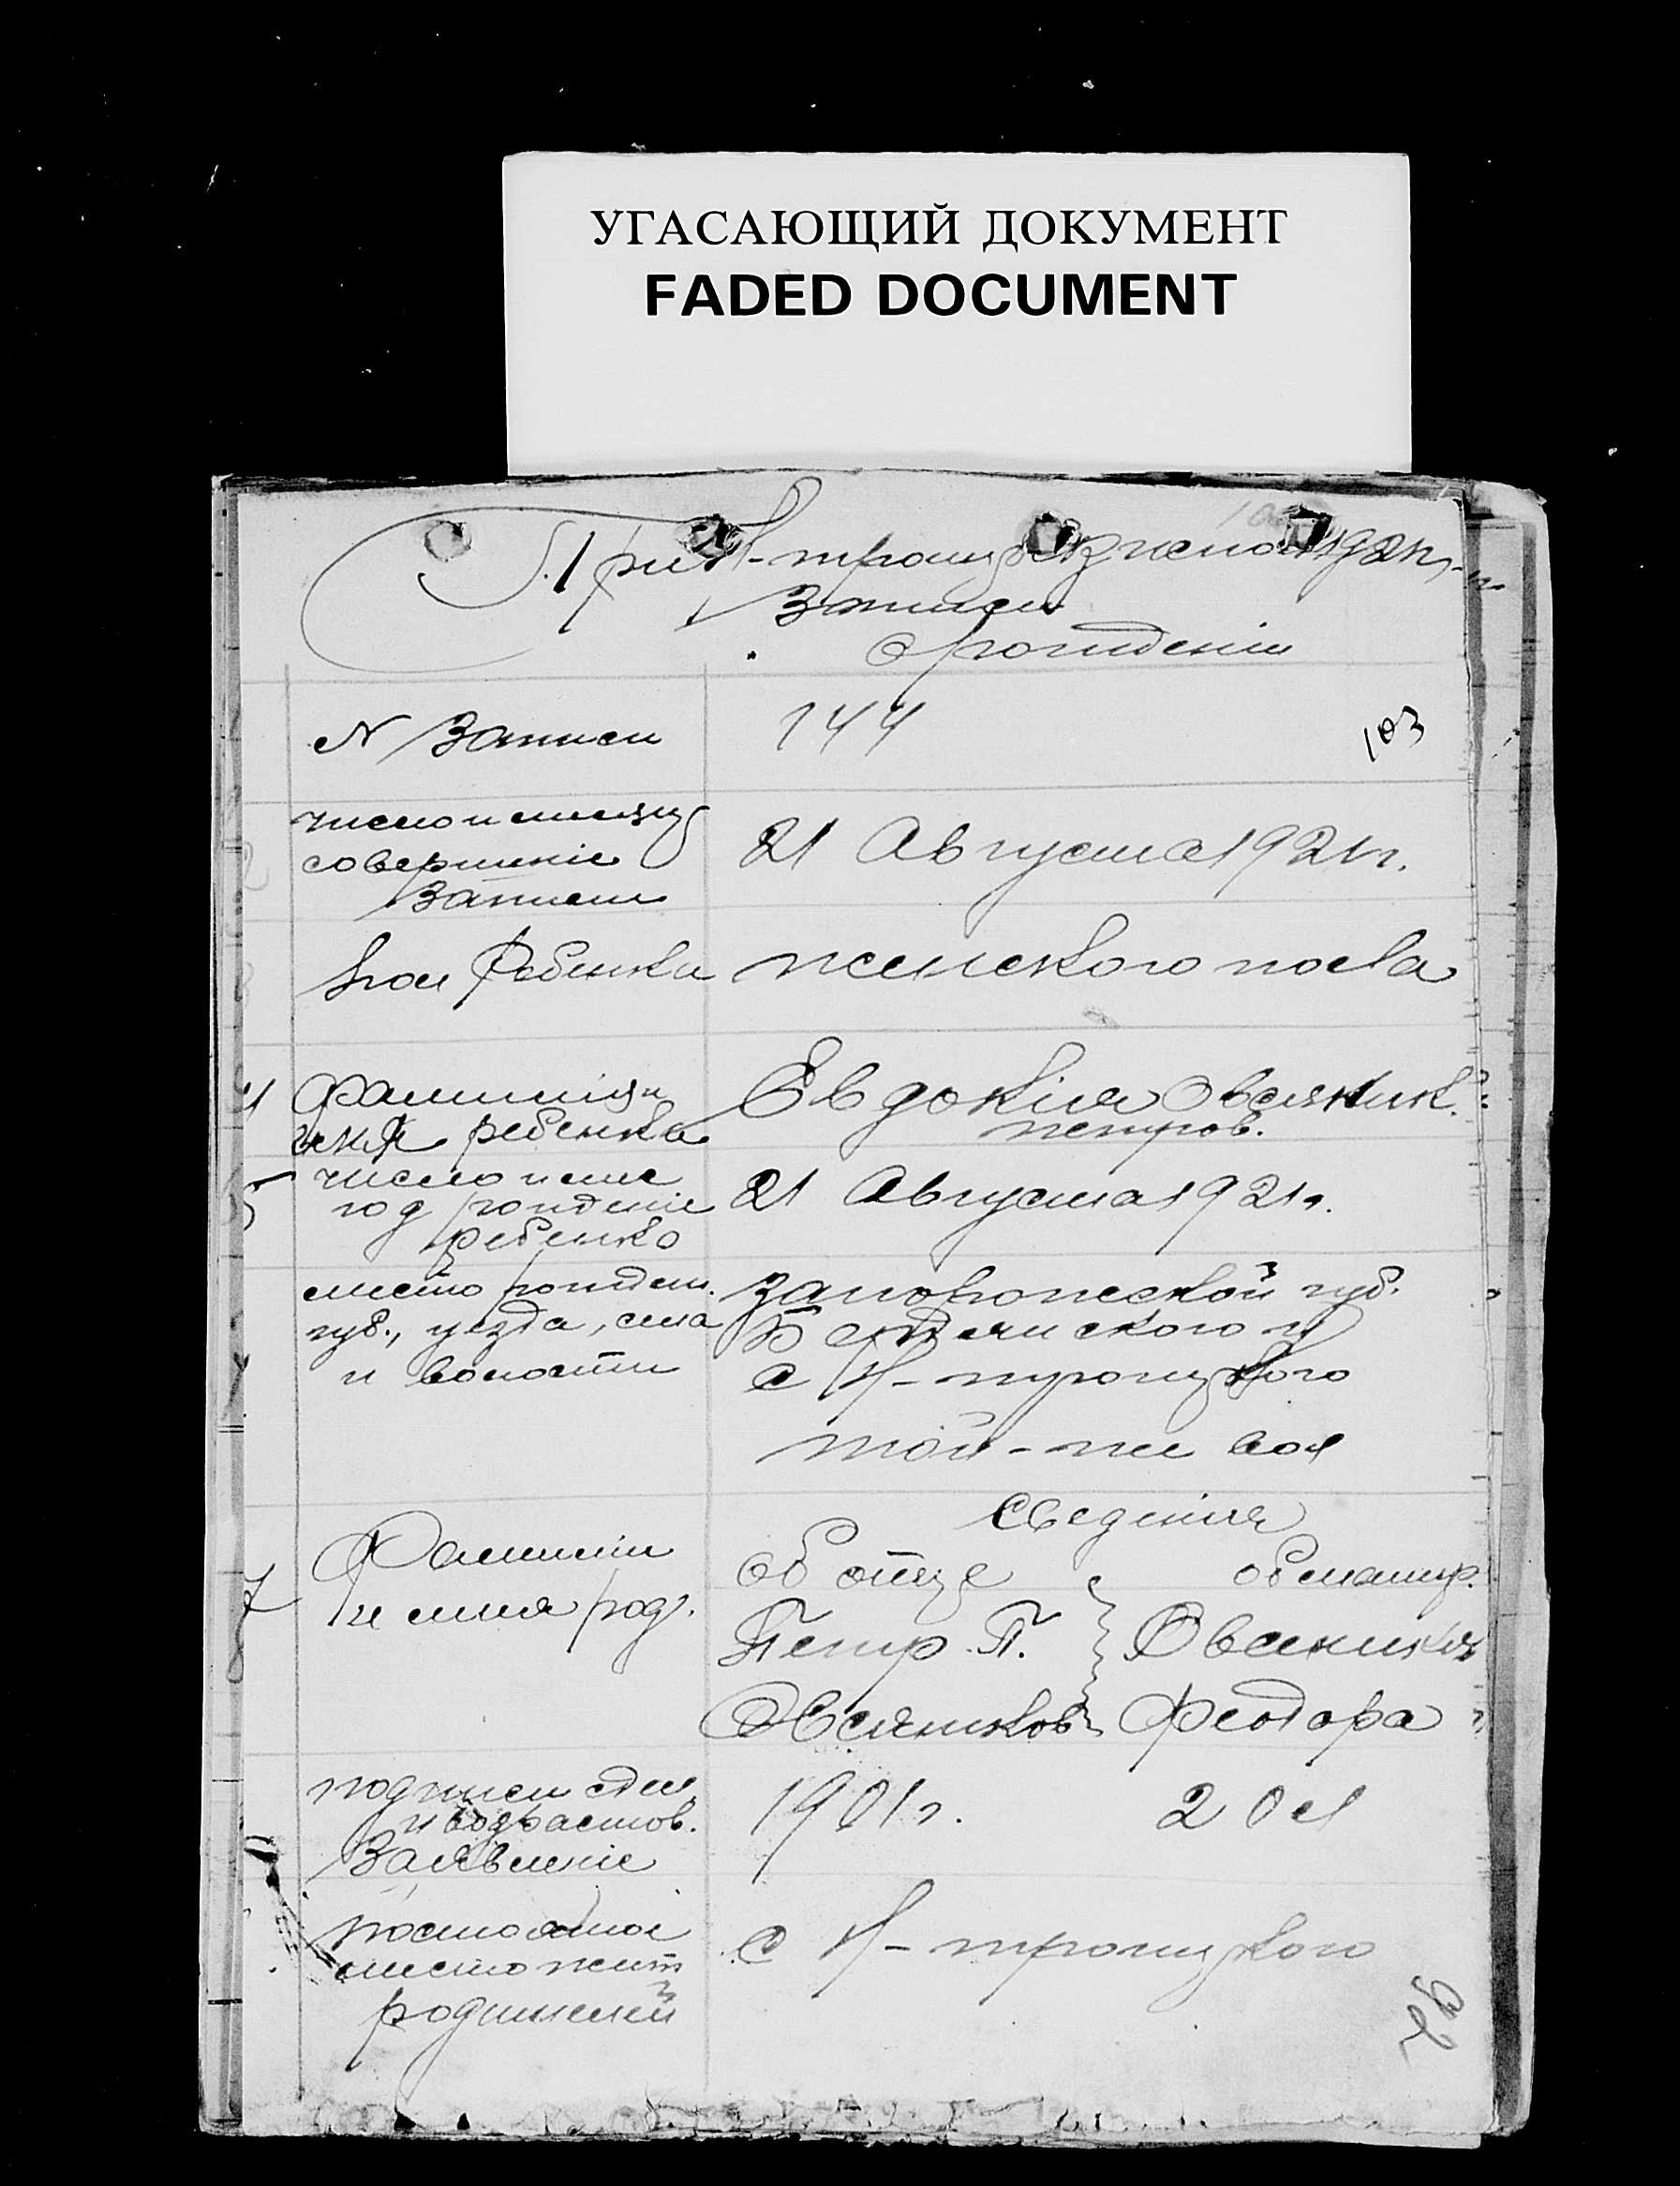 УГАСАЮЩИЙ ДОКУМЕНТ
FADED DOCUMENT
При Н-троиц
Записи
о рождении
N Записи
144
103
число и месяц
совершеніе
Записи
21 Августа 1921 г.
пол Ребенка
женского пола
4
Фамилия и
имя ребенка
Евдокія Овсяник.
петров.
5
число и мес
год рождение
ребенка
21 Августа 1921 г.
место рожден.
губ., уезда, села
и волости
запорожской губ.
Бердянского у
с Н-троицкого
той-же вол
7
Фамили
и имя род.
Сведения
об отце
об матер.
Петр П.
Овсяников
Овсяник
Феодора
подписи
и возрастов.
Заявление
1901 г.
20 л
постоянное
место жит
родителей
с Н-троицкого